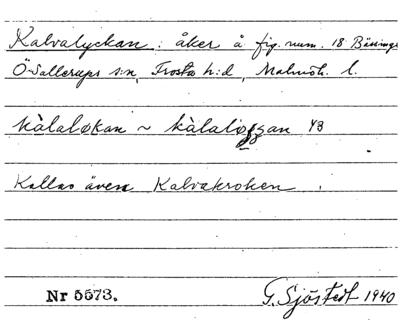 Kalvalyckan: åker å fig.num. 18 Bäsinge
Ö-Sallerups s:n, Frosta h:d, Malmöh. l.
kàlaløkan ~ kàlaløggan 43
Kallas även Kalvakroken.
Nr 5573. G. Sjöstedt 1940